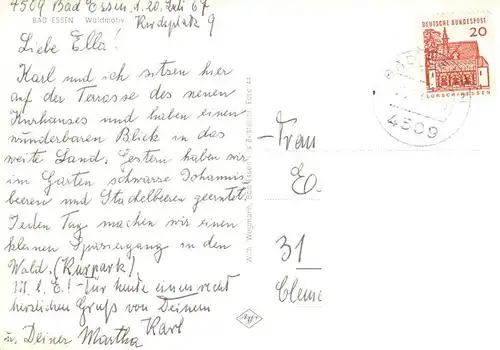 4509 Bad Essen, d. 20. Juli 67
BAD ESSEN Waldmotiv
Kirchplatz 9
Liebe Ella!
Karl und ich sitzen hier
auf der Terrasse des neuen
Kurhauses und haben einen
wunderbaren Blick in das
weite Land. Gestern haben wir
im Garten schwarze Johannis
beeren und Stachelbeeren geerntet.
Jeden Tag machen wir einen
kleinen Spaziergang in den
Wald, (Kurpark),
M. l. E.! – Für heute einen recht
herzlichen Gruß von Deinem
Karl
u. Deiner Martha
DEUTSCHE BUNDESPOST
20
LORSCH/HESSEN
4509
Frau
E.
31
Agfa